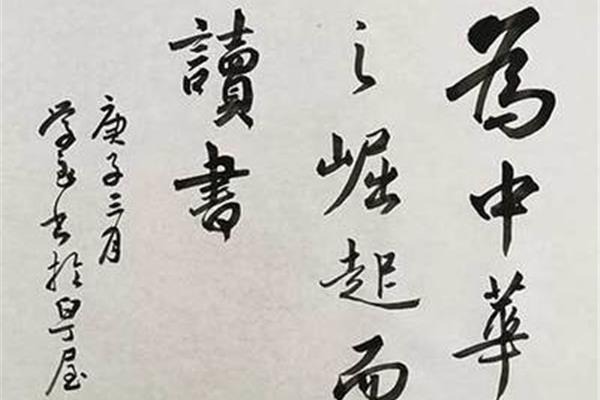 為中華
之崛起而
讀書
庚子三月
学書於
屋